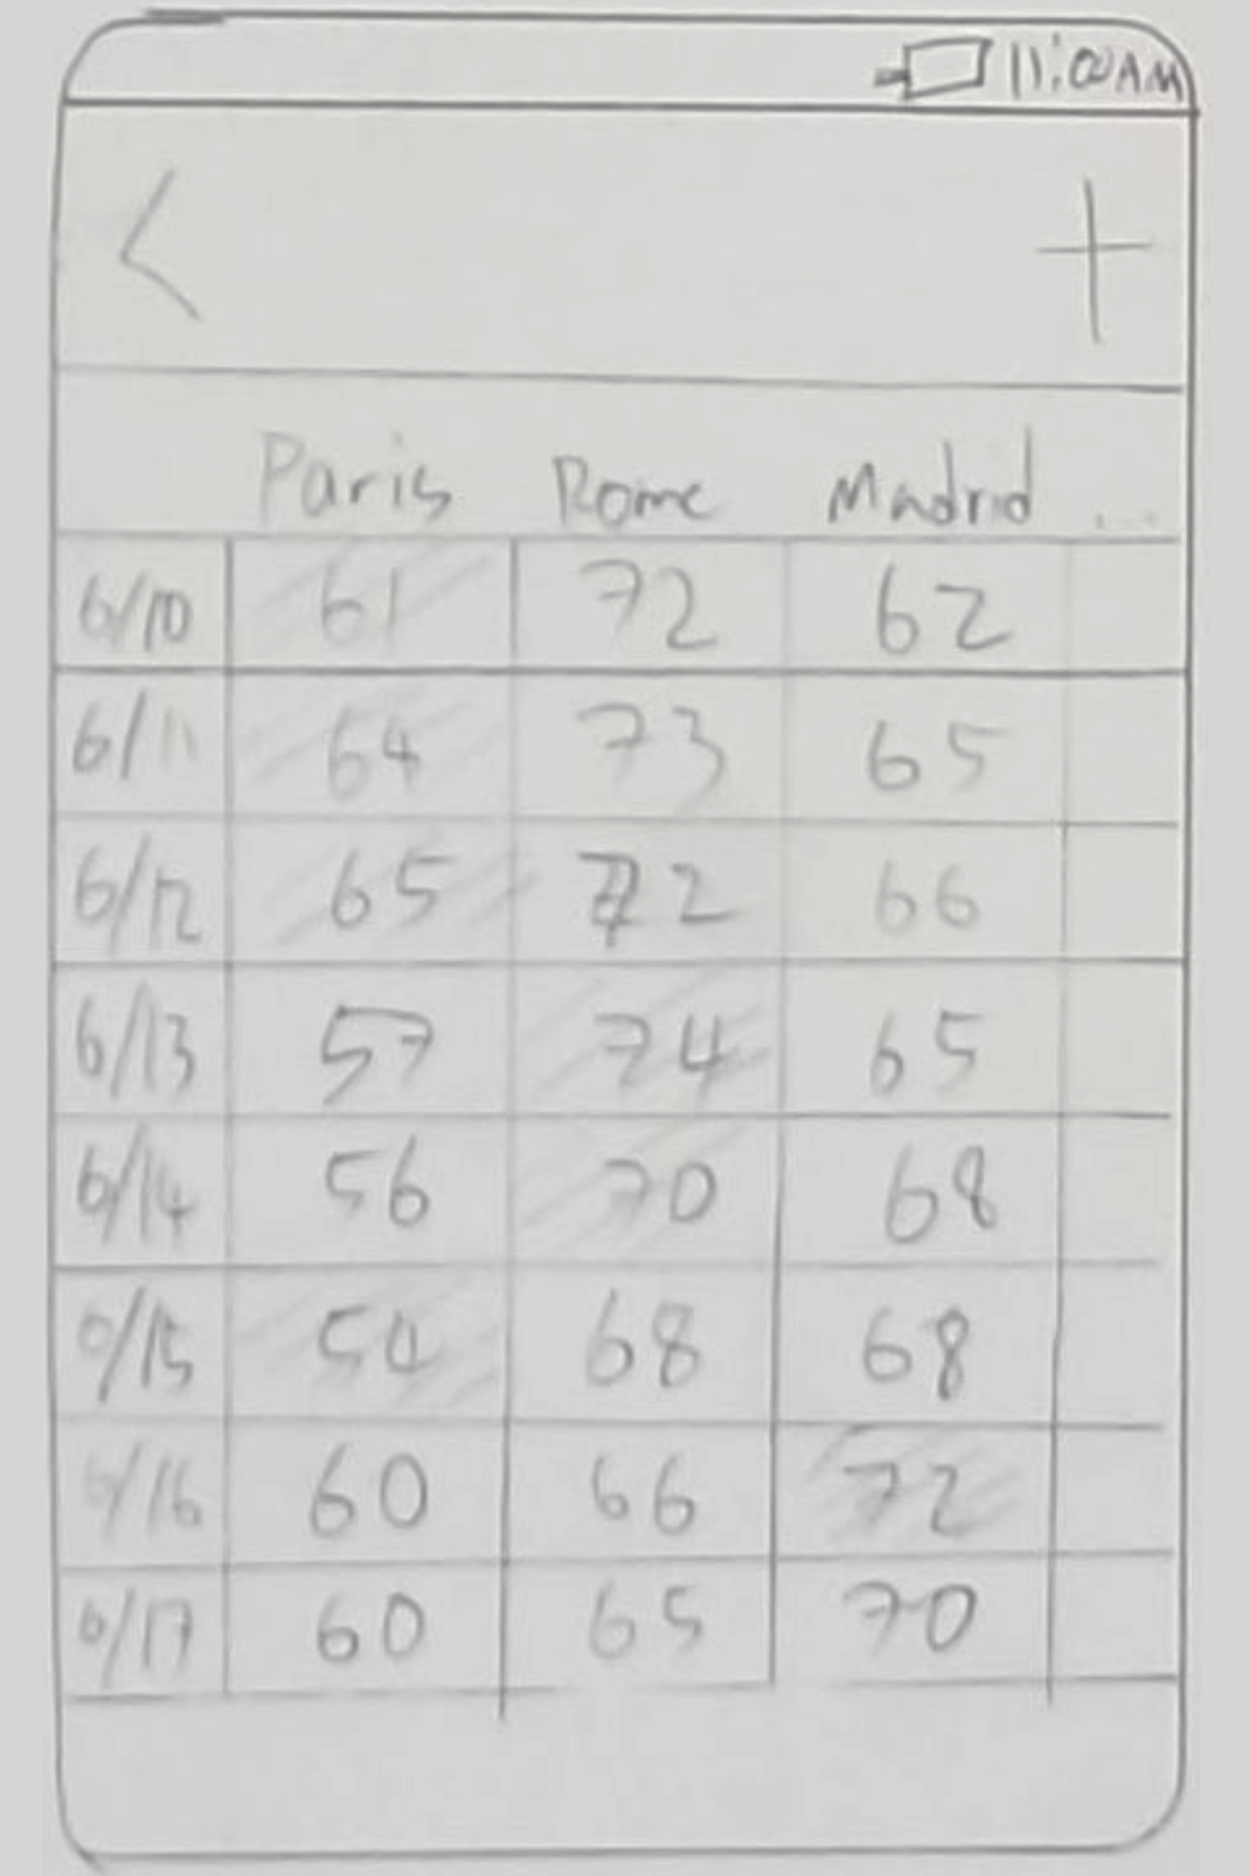 11:00AM
<
+
Paris Rome Madrid ...
6/10 61 72 62
6/11 64 73 65
6/12 65 72 66
6/13 57 74 65
6/14 56 70 68
6/15 54 68 68
6/16 60 66 72
6/17 60 65 70